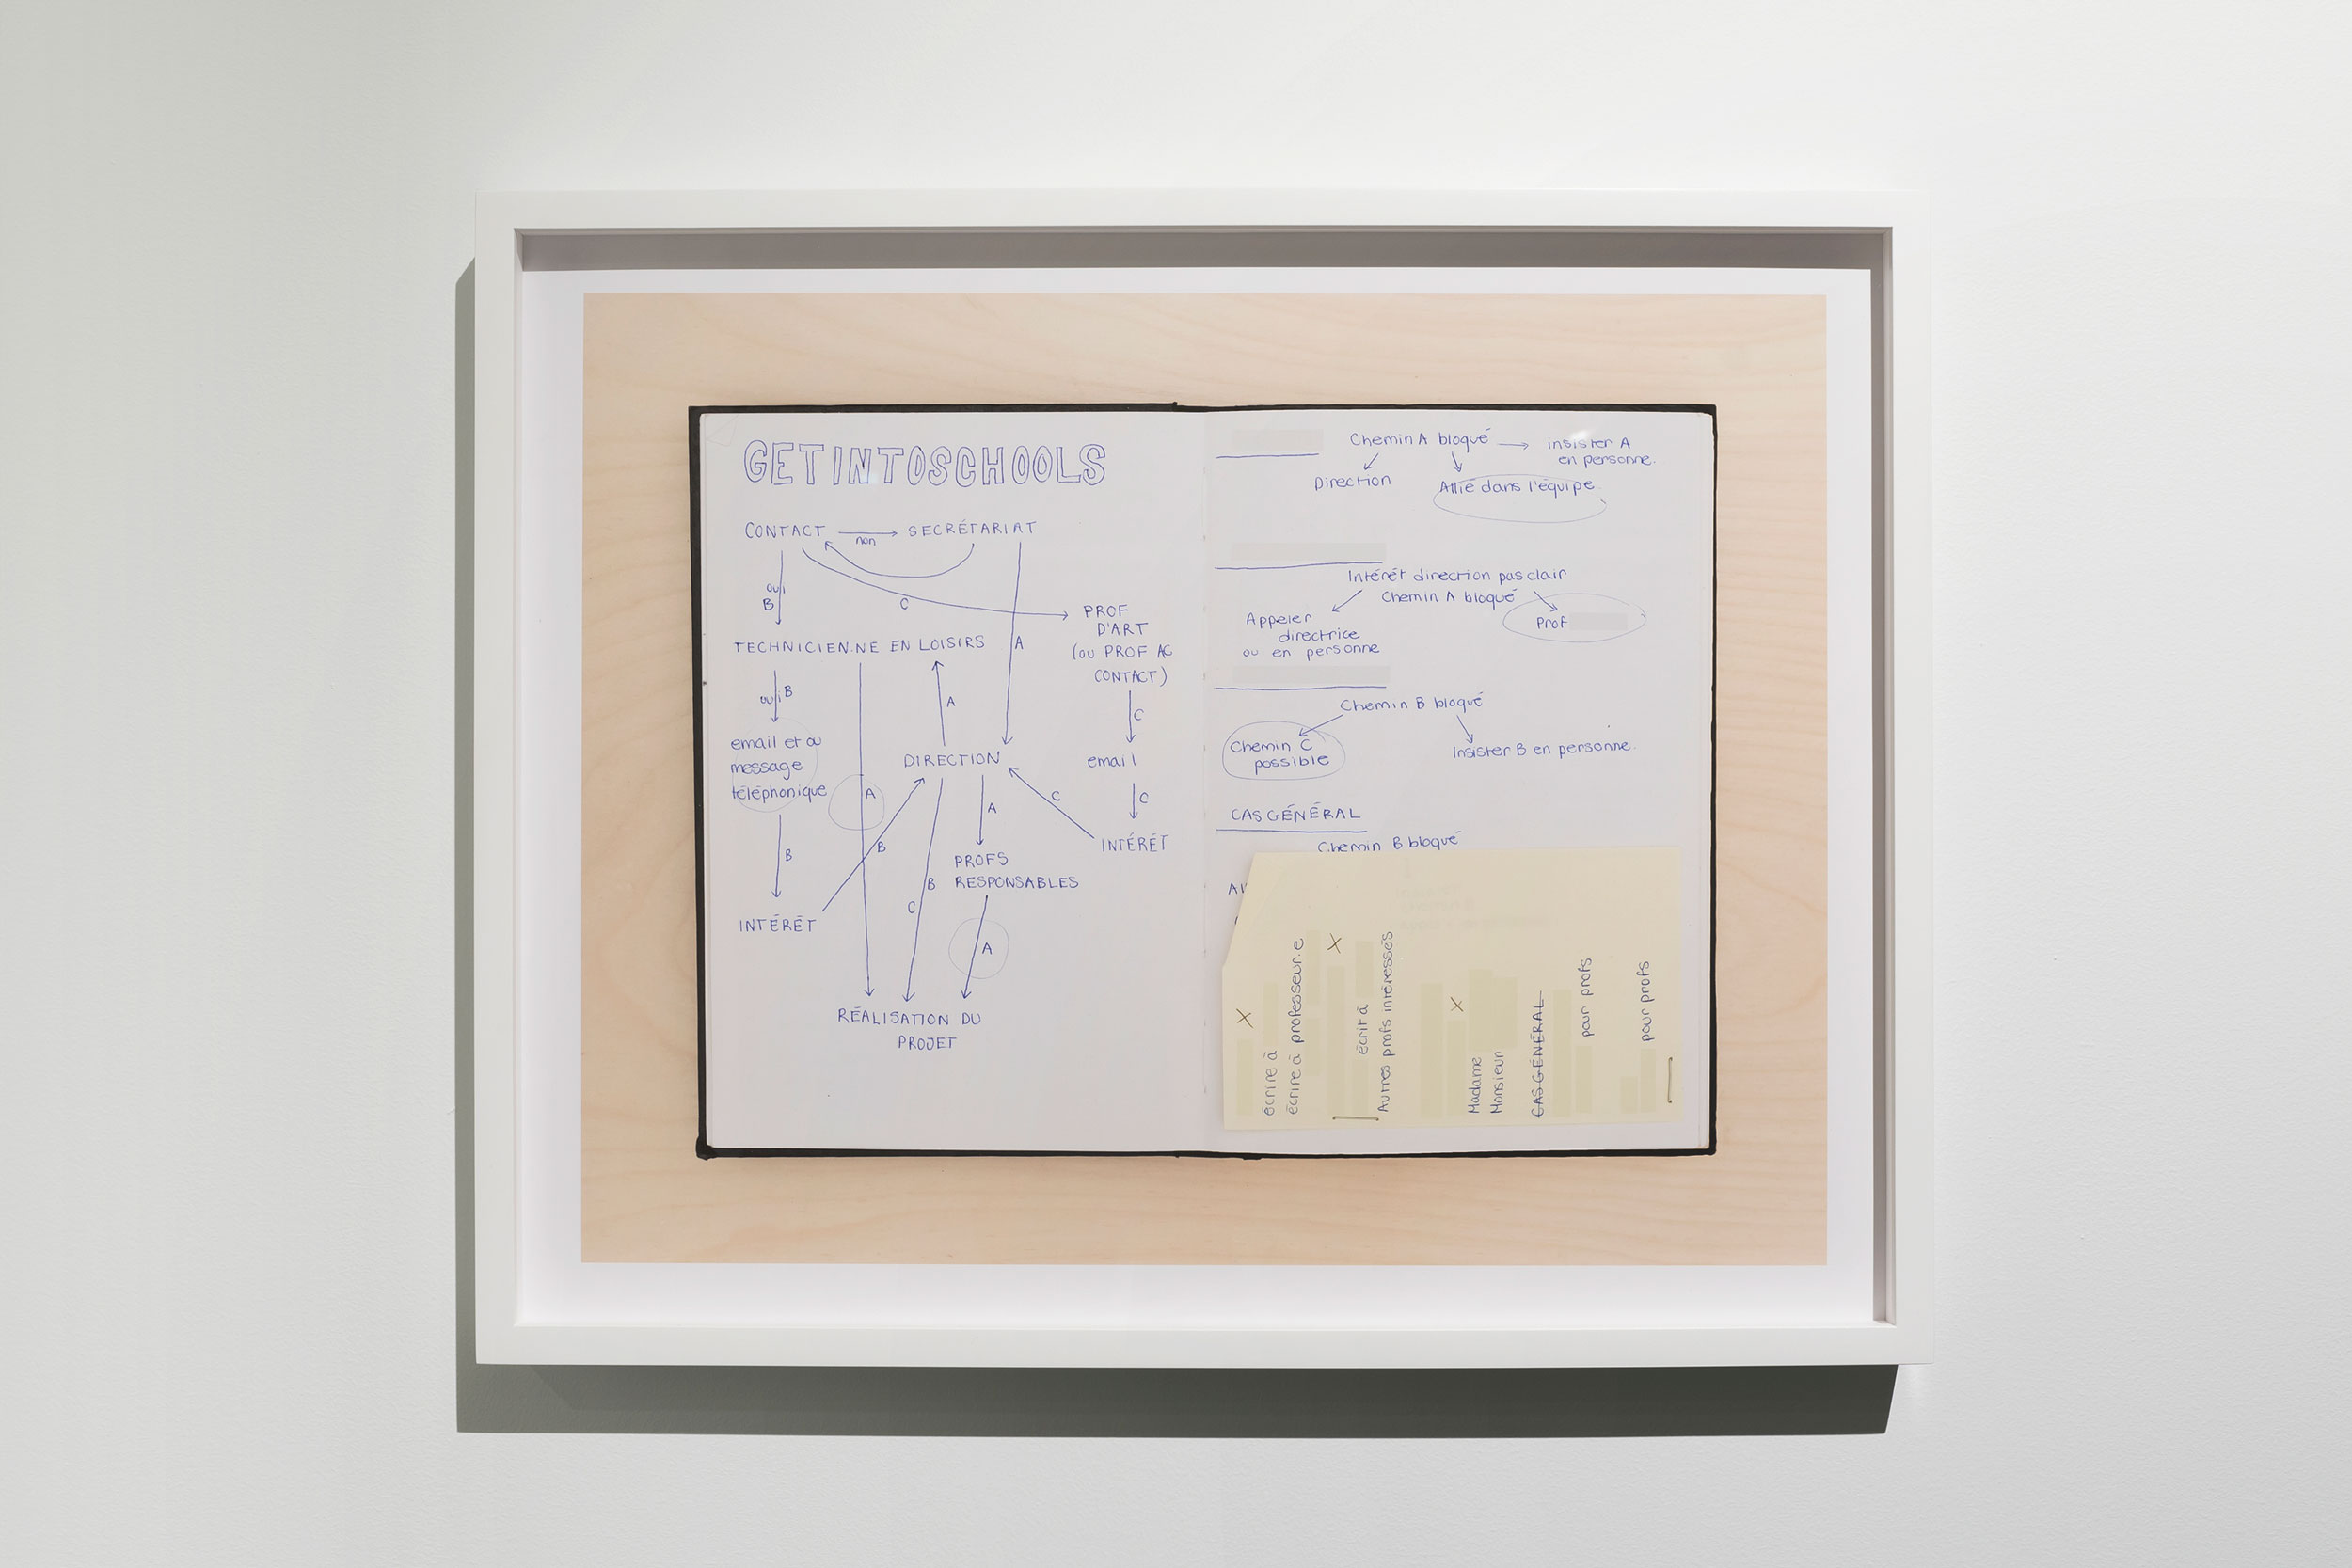 GETINTOSCHOOLS
CONTACT
non
SECRÉTARIAT
oui
B
C
A
PROF
D'ART
(OU PROF AC
CONTACT)
TECHNICIEN.NE EN LOISIRS
oui
B
A
C
email et ou
message
téléphonique
DIRECTION
email
A
B
A
C
C
B
INTÉRÊT
B
PROFS
RESPONSABLES
C
INTÉRÊT
A
RÉALISATION DU
PROJET
Chemin A bloqué
insister A
en personne.
Direction
Allié dans l'équipe
Intérêt direction pas clair
Chemin A bloqué
Appeler
directrice
ou en personne
Prof
Chemin B bloqué
Chemin C
possible
Insister B en personne.
CAS GÉNÉRAL
Chemin B bloqué
X
écrire à
écrire à professeur.e
X
écrit à
Autres profs intéressés
X
Madame
Monsieur
CAS GÉNÉRAL
pour profs
pour profs